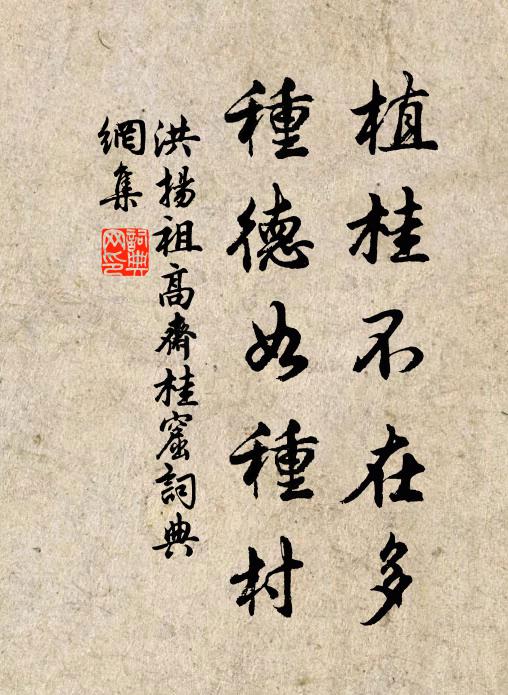 植桂不在多
種德如種村
洪揚祖高齋桂窟詞典
網集
詞典
网印